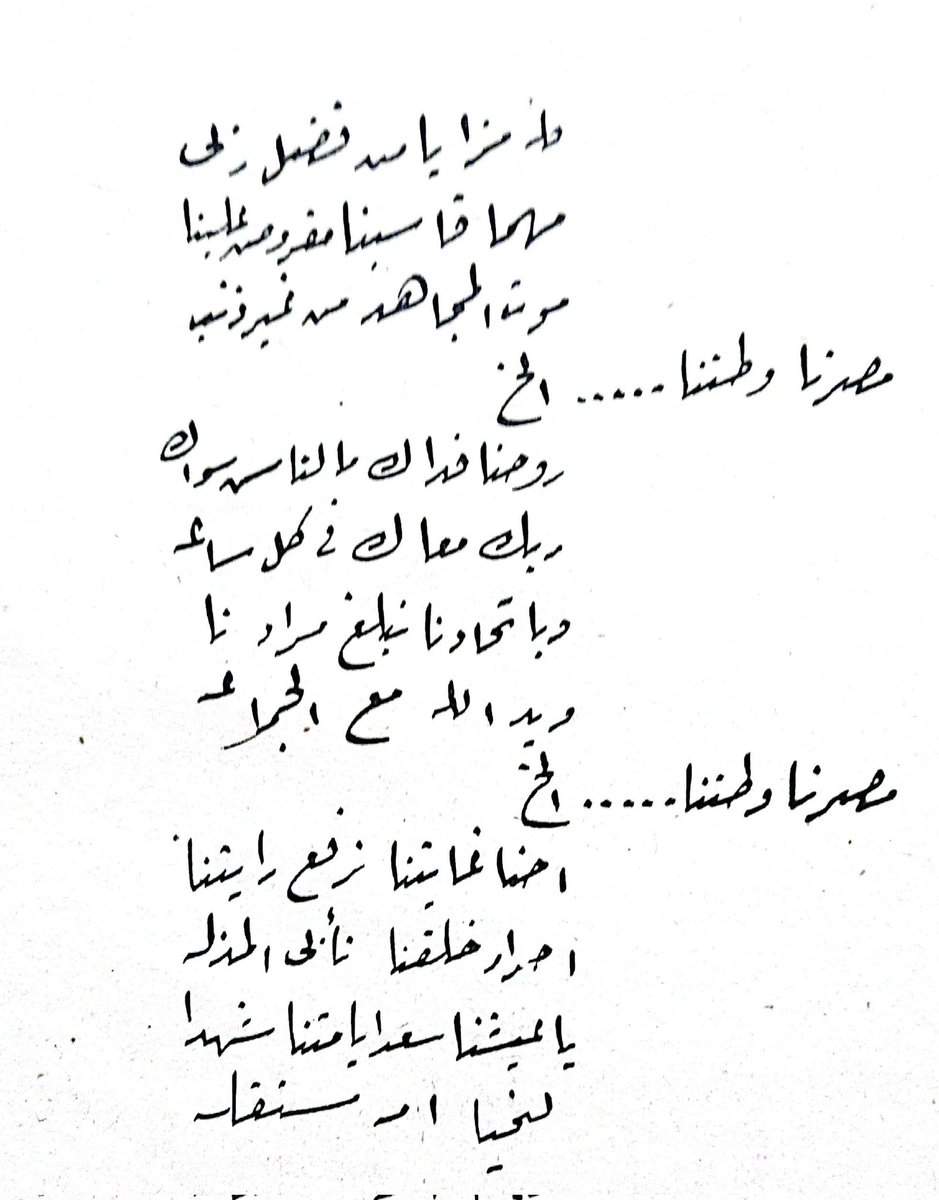 مزايا من فضل ربي
مهما قاسينا مفروض علينا
موت المجاهد من غير ذنب
مصرنا وطننا ..... الخ
روحنا فداك مالناس سواك
ربك معاك في كل ساعه
وباتحادنا نبلغ مرادنا
ويد الله مع الجماعه
مصرنا وطننا ..... الخ
احنا غايتنا نرفع رايتنا
احرار خلقنا نأبى المذله
يا عيشنا سعدا يا متنا شهدا
لنحيا امه مستقله